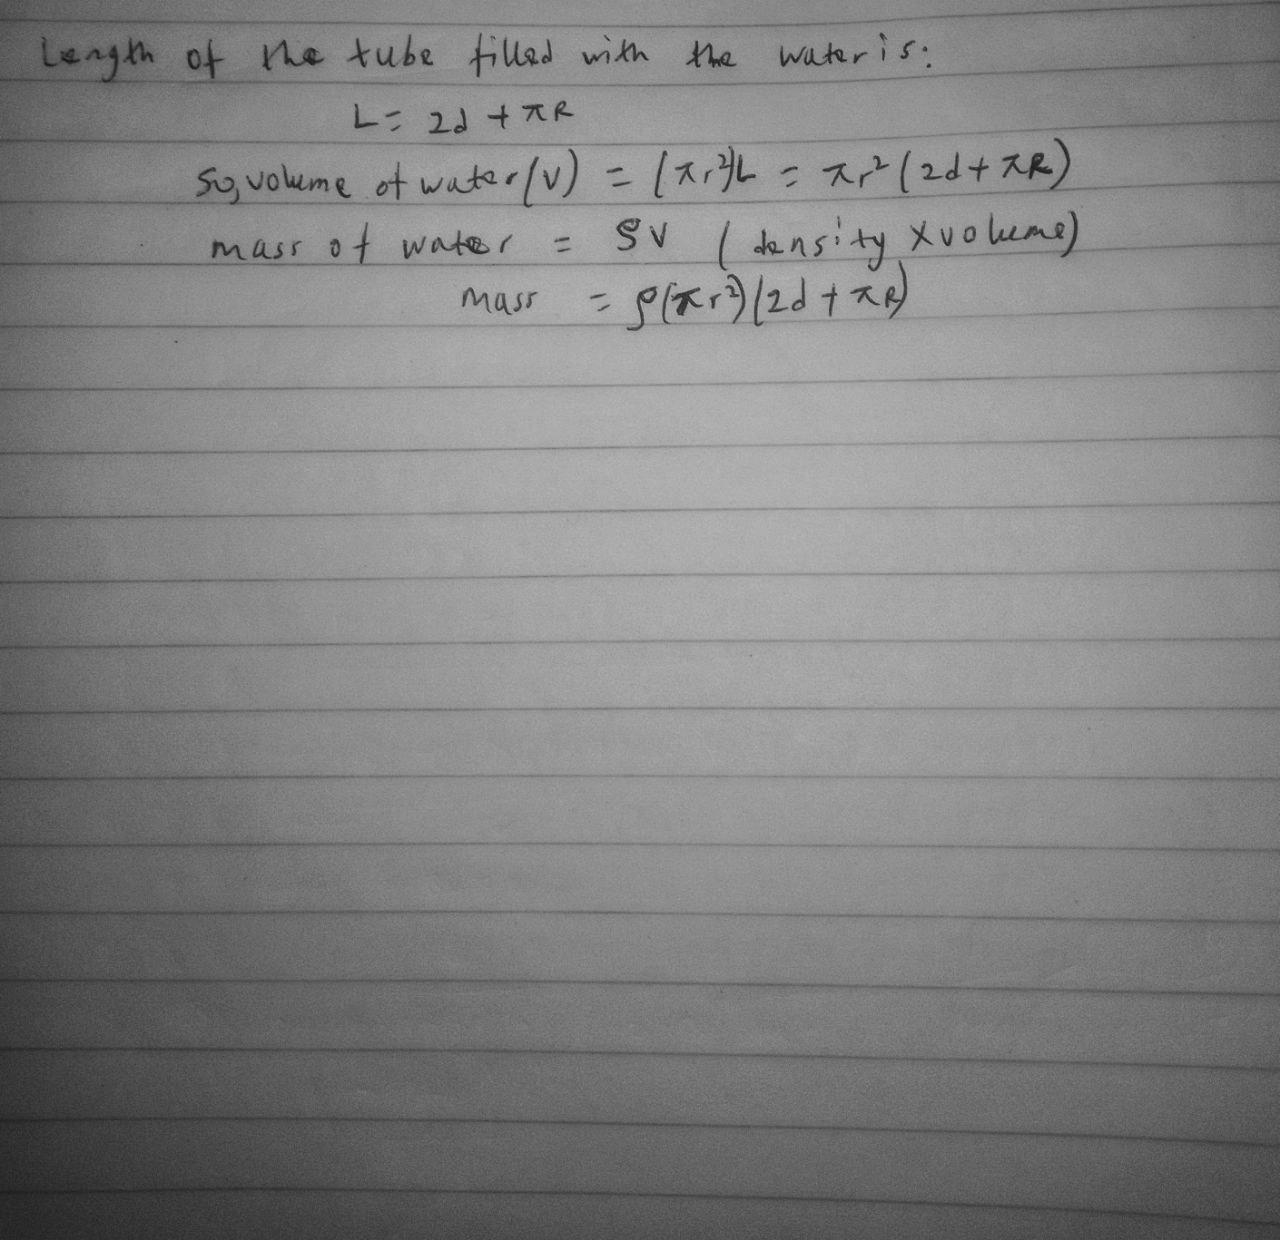 Length of the tube filled with the water is:
L = 2d + πR
So, volume of water (V) = (πr²)L = πr² (2d + πR)
mass of water = ρV (density × volume)
mass = ρ(πr²)(2d + πR)